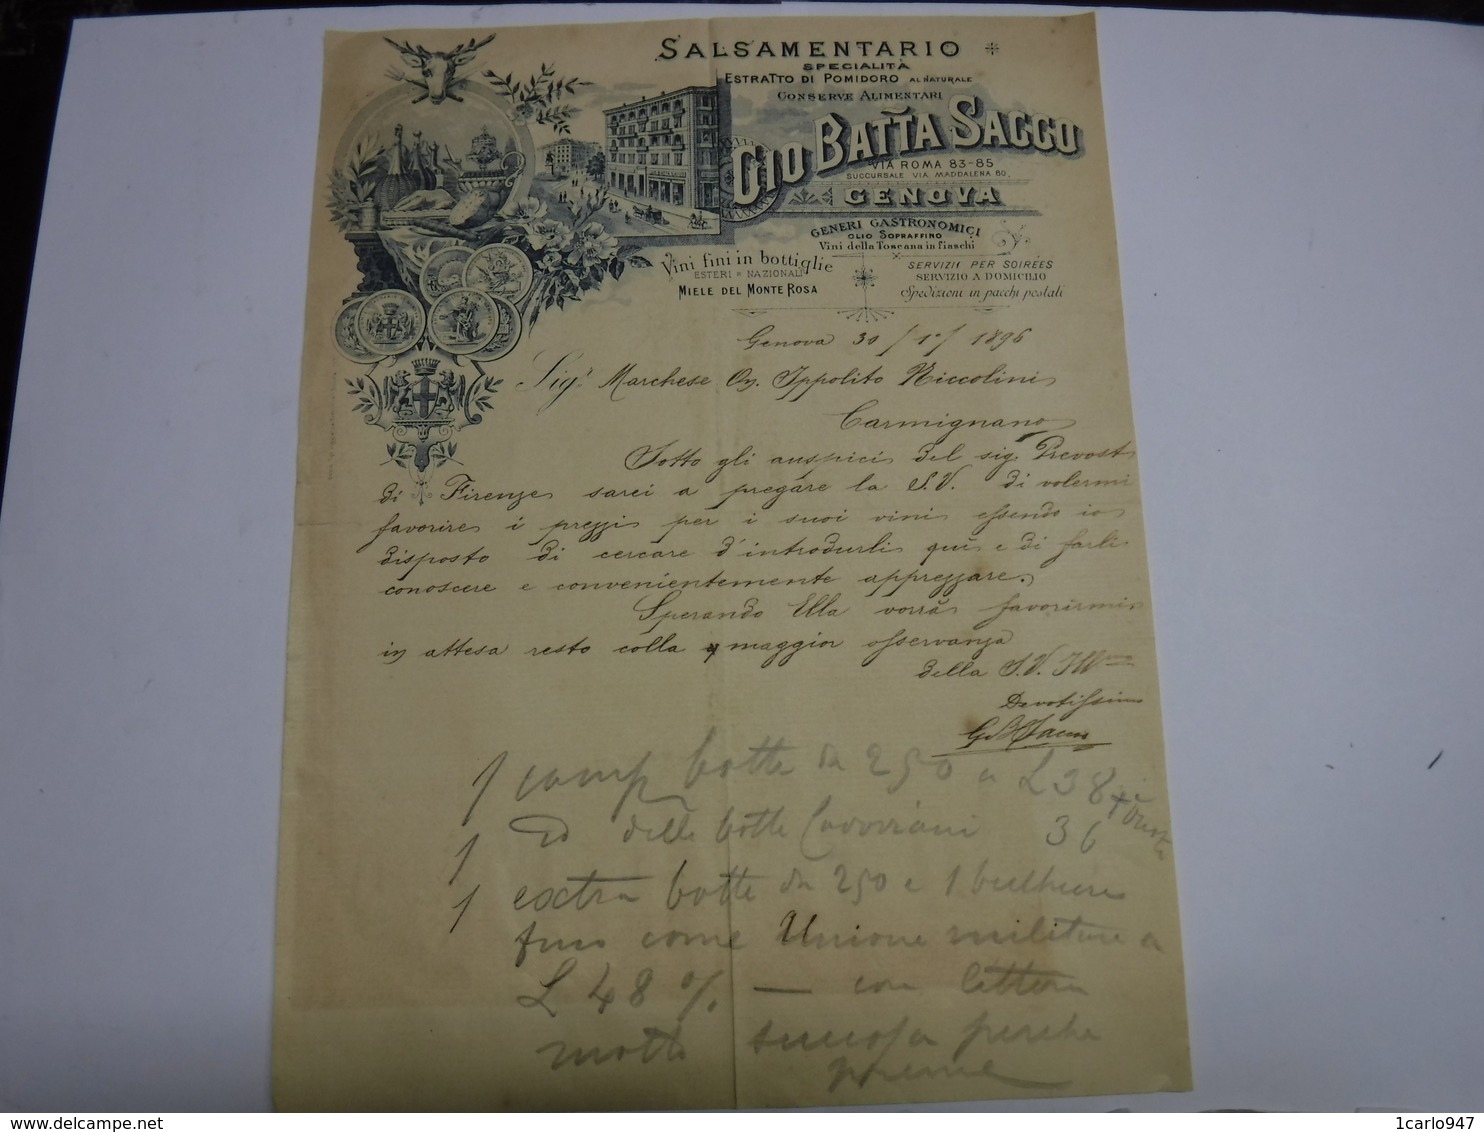 SALSAMENTARIO
SPECIALITÀ
ESTRATTO DI POMIDORO AL NATURALE
CONSERVE ALIMENTARI
GIO BATTA SACCO
VIA ROMA 83-85
SUCCURSALE VIA MADDALENA 80,
GENOVA
GENERI GASTRONOMICI
OLIO SOPRAFFINO
Vini della Toscana in fiaschi
Vini fini in bottiglie
ESTERI E NAZIONALI
MIELE DEL MONTE ROSA
SERVIZII PER SOIRÉES
SERVIZIO A DOMICILIO
Spedizioni in pacchi postali
Genova 30/ 1º/ 1896
Sigr Marchese On. Ippolito Niccolini
Carmignano
Sotto gli auspici del sig. Prevost
di Firenze sarei a pregare la S.V. di volermi
favorire i prezzi per i suoi vini essendo io
disposto di cercare d'introdurli qui e di farli
conoscere e convenientemente apprezzare.
Sperando Ella vorrà favorirmi
in attesa resto colla maggior osservanza
della S.V. Illma
Devotissimo
GBSacco
1 camp botte da 250 a L 38
1 delle botte 36
1 extra botte da 250 e 1
fino come Unione militare a
L 48 % — con lettera
molto succosa perche
preme
delcampe.net
1carlo947